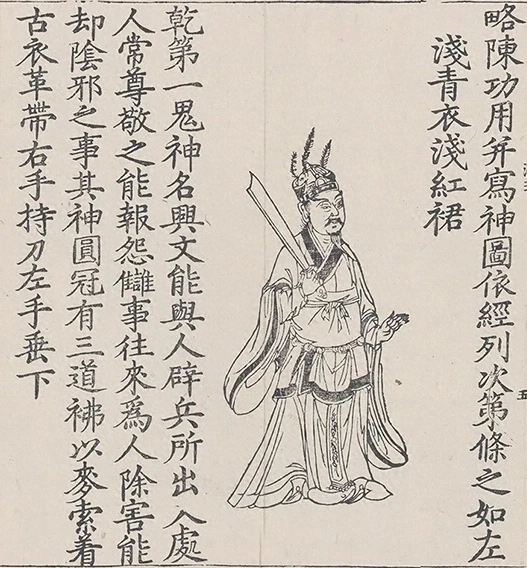 略陳功用并寫神圖依經列次第條之如左
淺青衣淺紅裙
乾第一鬼神名興文能與人辟兵所出入處
人常尊敬之能報怨讎事往來為人除害能
却陰邪之事其神圓冠有三道祶以麥索着
古衣革帶右手持刀左手垂下
五